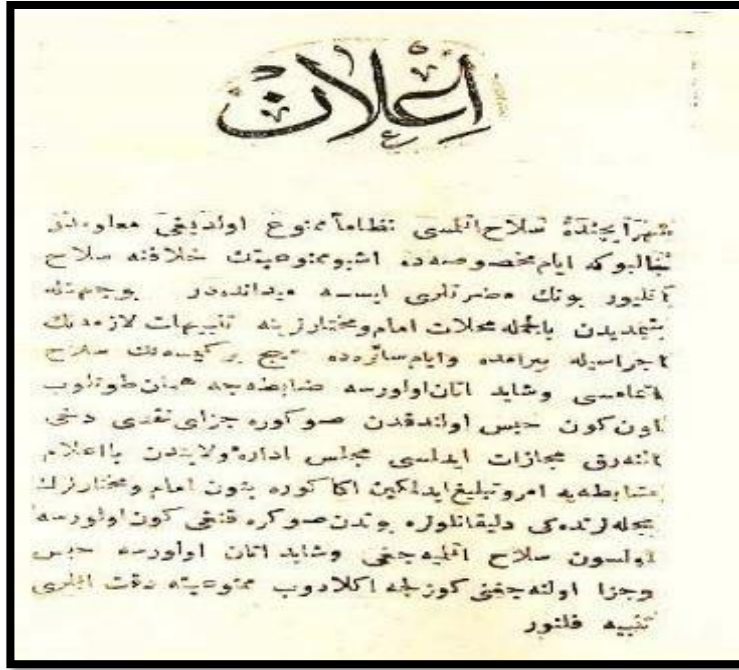 اعلان
شهر ايچنده سلاح اتلمسى نظاماً ممنوع اولديغى معلومدر
حالبوكه ايام مخصوصه‌ده اشبو ممنوعيتك خلافنه سلاح
آتليور بونك مضرتلرى ايسه ميدانده‌در بوجهتله
بتمديدن بالجمله محلات امام ومختارلرينه تنبيهات لازمه‌نك
اجراسيله بيرامده وايام سائره‌ده هيچ بر كيمسه‌نك سلاح
اتمامسى وشايد اتان اولورسه ضابطه‌جه همان طوتلوب
اون كون حبس اولندقدن صوكره جزاى نقدى دخى
النه‌رق مجازات ايدلمسى مجلس اداره ولايتدن با اعلام
ضابطه‌يه امر وتبليغ ايدلمكين اكا كوره بتون امام ومختارلرك
محله‌لرنده‌كى دليقانلولره بوندن صوكره قنغى كون اولورسه
اولسون سلاح اتلميه‌جغى وشايد اتان اولورسه حبس
وجزا اولنه‌جغنى كوزلجه اكلادوب ممنوعيته دقت ايتملرى
تنبيه قلنور